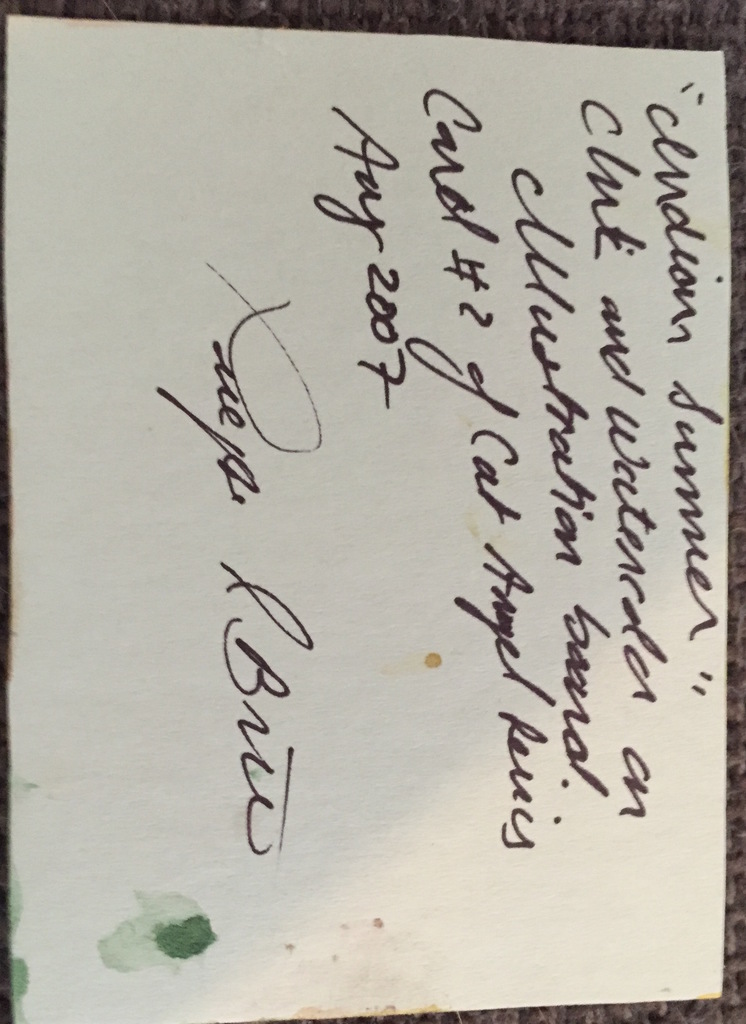 "Indian Summer"
Ink and watercolor on
Illustration board.
Card #2 of Cat Angel Series
Aug 2007